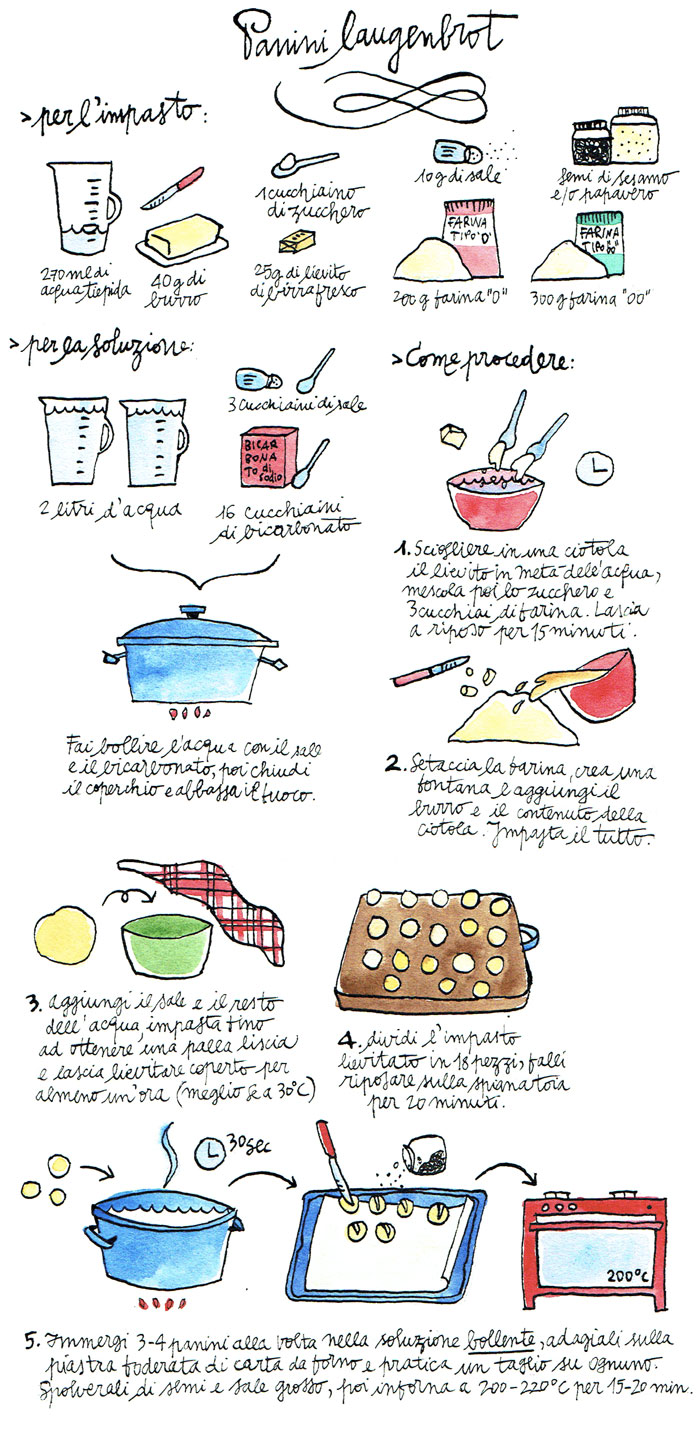 Panini laugenbrot
>per l'impasto:
270 ml di
acqua tiepida
40g di
burro
1 cucchiaino
di zucchero
25g di lievito
di birra fresco
10g di sale
FARINA
TIPO "0"
200g farina "0"
semi di sesamo
e/o papavero
FARINA
TIPO "00"
300g farina "00"
>per la soluzione:
2 litri d'acqua
3 cucchiaini di sale
BICAR
BONA
TO di
sodio
16 cucchiaini
di bicarbonato
Fai bollire l'acqua con il sale
e il bicarbonato, poi chiudi
il coperchio e abbassa il fuoco.
>Come procedere:
1. Sciogliere in una ciotola
il lievito in metà dell'acqua,
mescola poi lo zucchero e
3 cucchiai di farina. Lascia
a riposo per 15 minuti.
2. Setaccia la farina, crea una
fontana e aggiungi il
burro e il contenuto della
ciotola. Impasta il tutto.
3. Aggiungi il sale e il resto
dell'acqua, impasta fino
ad ottenere una palla liscia
e lascia lievitare coperto per
almeno un'ora (meglio se a 30°C)
4. dividi l'impasto
lievitato in 18 pezzi, falli
riposare sulla spianatoia
per 20 minuti.
30 sec
200°C
5. Immergi 3-4 panini alla volta nella soluzione bollente, adagiali sulla
piastra foderata di carta da forno e pratica un taglio su ognuno.
Spolverali di semi e sale grosso, poi inforna a 200-220°C per 15-20 min.